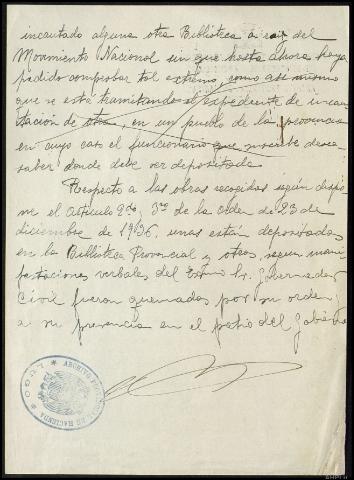 incautado alguna otra Biblioteca a raiz del
Movimiento Nacional sin que hasta ahora haya
podido comprobar tal extremo, como asi mismo
que se está tramitando el expediente de incau
tación de otra, en un pueblo de la provincia
en cuyo caso el funcionario que suscribe desea
saber donde debe ser depositada.
Respecto a las obras recogidas según dispo
ne el Articulo 2do, 3ro de la orden de 23 de
diciembre de 1936, unas están depositadas
en la Biblioteca Provincial y otras, segun mani
festaciones verbales del Excmo Sr. Gobernador
Civil fueron quemadas por su orden
a su presencia en el patio del Gobierno
ARCHIVO PROVINCIAL DE HACIENDA
LUGO